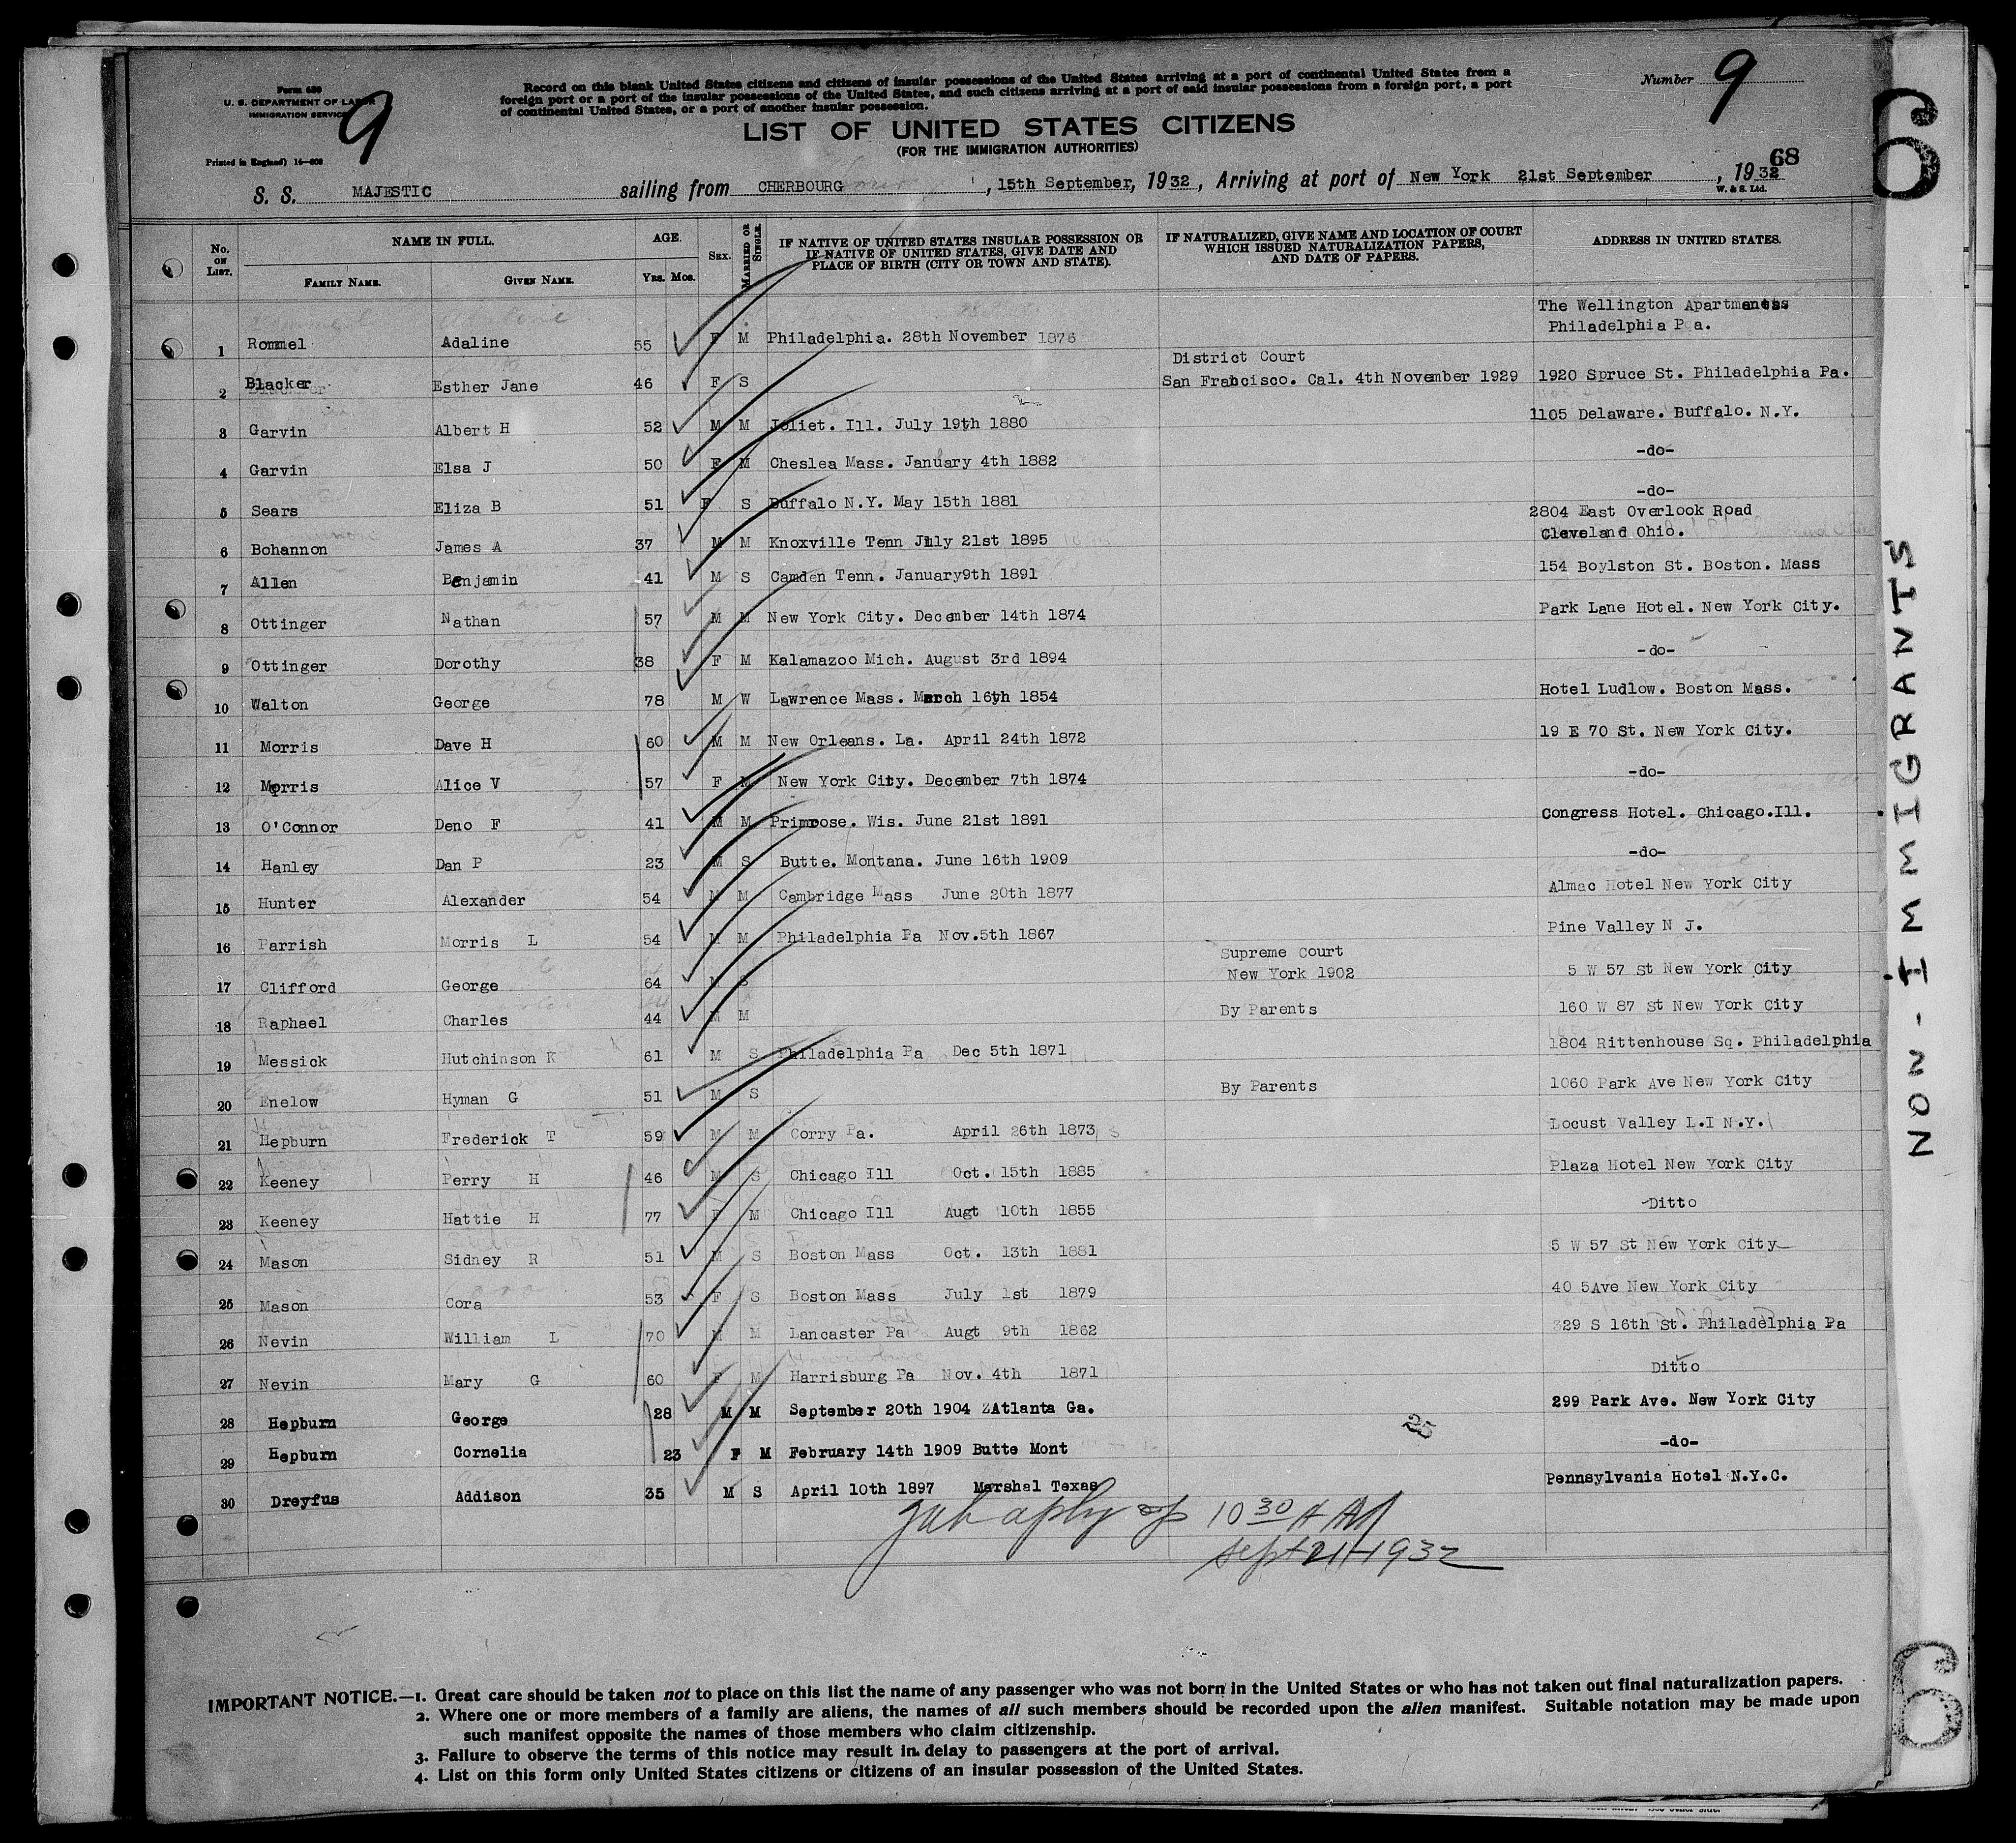 Form 630
U. S. DEPARTMENT OF LABOR
IMMIGRATION SERVICE
9
Printed in England) 14—608
Record on this blank United States citizens and citizens of insular possessions of the United States arriving at a port of continental United States from a
foreign port or a port of the insular possessions of the United States, and such citizens arriving at a port of said insular possessions from a foreign port, a port
of continental United States, or a port of another insular possession.
Number 9
LIST OF UNITED STATES CITIZENS
(FOR THE IMMIGRATION AUTHORITIES)
68
S. S. MAJESTIC sailing from CHERBOURG, 15th September, 1932, Arriving at port of New York 21st September, 1932
W. & S. Ltd.
No. ON LIST. NAME IN FULL. FAMILY NAME. GIVEN NAME. AGE. YRS. MOS. SEX. MARRIED OR SINGLE. IF NATIVE OF UNITED STATES INSULAR POSSESSION OR IF NATIVE OF UNITED STATES, GIVE DATE AND PLACE OF BIRTH (CITY OR TOWN AND STATE). IF NATURALIZED, GIVE NAME AND LOCATION OF COURT WHICH ISSUED NATURALIZATION PAPERS, AND DATE OF PAPERS. ADDRESS IN UNITED STATES.
The Wellington Apartments
1 Rommel Adaline 55 F M Philadelphia. 28th November 1876 Philadelphia P a.
District Court
2 Blacker Esther Jane 46 F S San Francisco. Cal. 4th November 1929 1920 Spruce St. Philadelphia Pa.
3 Garvin Albert H 52 M M Joliet. Ill. July 19th 1880 1105 Delaware. Buffalo. N.Y.
4 Garvin Elsa J 50 F M Cheslea Mass. January 4th 1882 -do-
5 Sears Eliza B 51 F S Buffalo N.Y. May 15th 1881 -do-
2804 East Overlook Road
6 Bohannon James A 37 M M Knoxville Tenn July 21st 1895 Cleveland Ohio.
7 Allen Benjamin 41 M S Camden Tenn. January9th 1891 154 Boylston St. Boston. Mass
8 Ottinger Nathan 57 M M New York City. December 14th 1874 Park Lane Hotel. New York City.
9 Ottinger Dorothy 38 F M Kalamazoo Mich. August 3rd 1894 -do-
10 Walton George 78 M W Lawrence Mass. March 16th 1854 Hotel Ludlow. Boston Mass.
11 Morris Dave H 60 M M New Orleans. La. April 24th 1872 19 E 70 St. New York City.
12 Morris Alice V 57 F M New York City. December 7th 1874 -do-
13 O'Connor Deno F 41 M M Primrose. Wis. June 21st 1891 Congress Hotel. Chicago.Ill.
14 Hanley Dan P 23 M S Butte. Montana. June 16th 1909 -do-
15 Hunter Alexander 54 M M Cambridge Mass June 20th 1877 Almac Hotel New York City
16 Parrish Morris L 54 M M Philadelphia Pa Nov.5th 1867 Pine Valley N J.
Supreme Court
17 Clifford George 64 M S New York 1902 5 W 57 St New York City
18 Raphael Charles 44 M M By Parents 160 W 87 St New York City
19 Messick Hutchinson K 61 M S Philadelphia Pa Dec 5th 1871 1804 Rittenhouse Sq. Philadelphia
20 Enelow Hyman G 51 M S By Parents 1060 Park Ave New York City
21 Hepburn Frederick T 59 M M Corry Pa. April 26th 1873 Locust Valley L.I N.Y.
22 Keeney Perry H 46 M S Chicago Ill Oct. 15th 1885 Plaza Hotel New York City
23 Keeney Hattie H 77 F M Chicago Ill Augt 10th 1855 Ditto
24 Mason Sidney R 51 M S Boston Mass Oct. 13th 1881 5 W 57 St New York City
25 Mason Cora 53 F S Boston Mass July 1st 1879 40 5Ave New York City
26 Nevin William L 70 M M Lancaster Pa Augt 9th 1862 329 S 16th St. Philadelphia Pa
27 Nevin Mary G 60 F M Harrisburg Pa Nov. 4th 1871 Ditto
28 Hepburn George 28 M M September 20th 1904 Atlanta Ga. 299 Park Ave. New York City
25
29 Hepburn Cornelia 23 F M February 14th 1909 Butte Mont -do-
30 Dreyfus Addison 35 M S April 10th 1897 Marshal Texas Pennsylvania Hotel N.Y.C.
10 30 A M
Sept 21-1932
NON-IMMIGRANTS
6
6
IMPORTANT NOTICE.—1. Great care should be taken not to place on this list the name of any passenger who was not born in the United States or who has not taken out final naturalization papers.
2. Where one or more members of a family are aliens, the names of all such members should be recorded upon the alien manifest. Suitable notation may be made upon
such manifest opposite the names of those members who claim citizenship.
3. Failure to observe the terms of this notice may result in delay to passengers at the port of arrival.
4. List on this form only United States citizens or citizens of an insular possession of the United States.